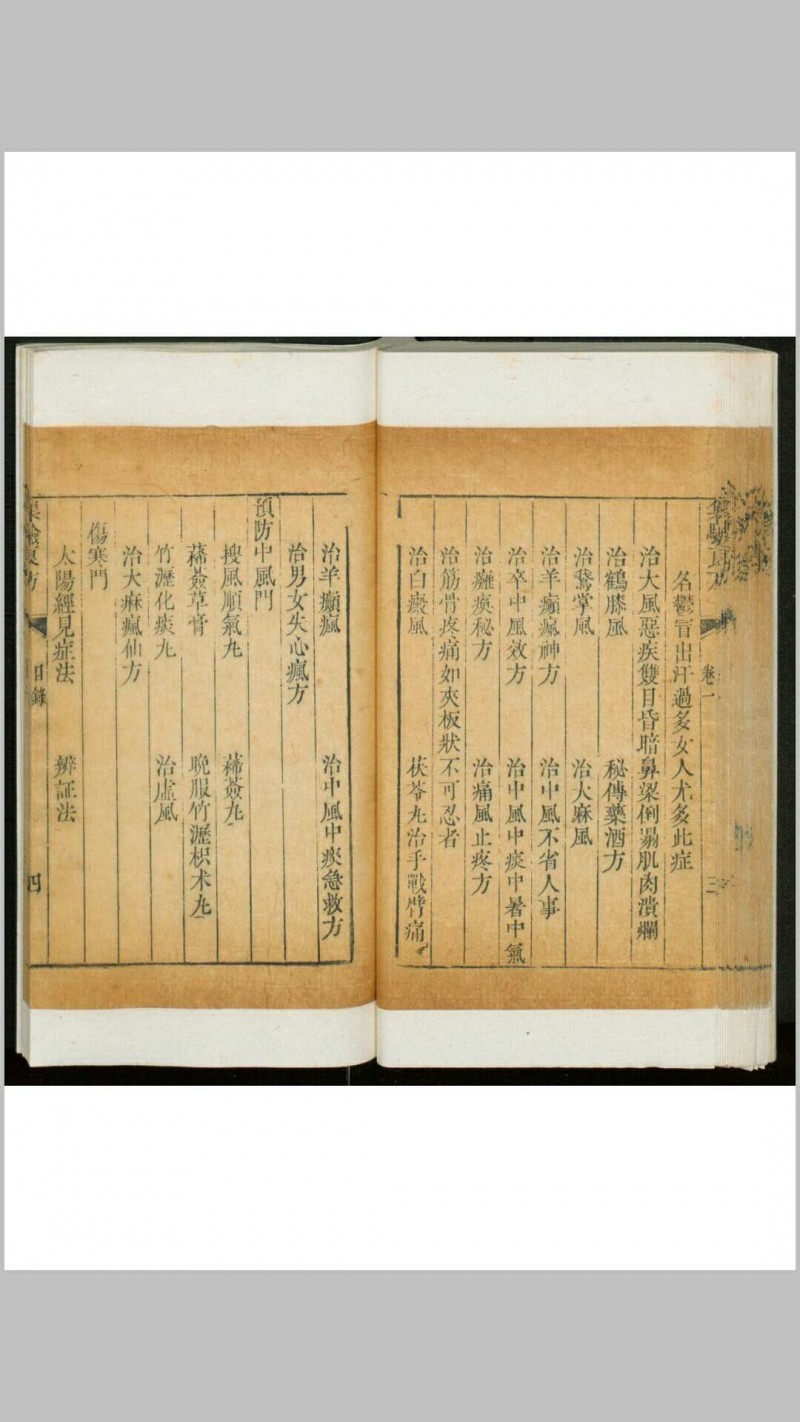 集驗良方 卷一 三
名鬱冒出汗過多女人尤多此症
治大風惡疾雙目昏暗鼻梁倒塌肌肉潰爛
治鶴膝風 秘傳藥酒方
治鵞掌風 治大麻風
治羊癲瘋神方 治中風不省人事
治卒中風效方 治中風中痰中暑中氣
治癱瘓秘方 治痛風止疼方
治筋骨疼痛如夾板狀不可忍者
治白癜風 茯苓丸治手戰臂痛
治羊癲瘋 治中風中痰急救方
治男女失心瘋方
預防中風門
搜風順氣丸 豨薟丸
豨薟草膏 晩服竹瀝枳术丸
竹瀝化痰丸 治虛風
治大麻瘋仙方
傷寒門
太陽經見症法 辨証法
集驗良方 目錄 四